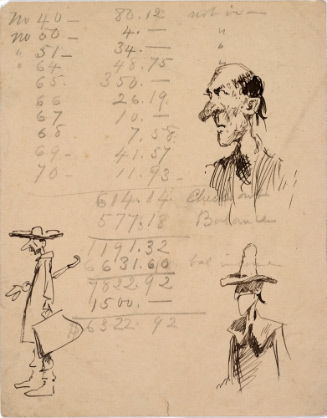 No 40 - 80.12 not in -
No 60 - 4. - "
" 51 - 34. - "
" 64 48.75
65. 350. -
66 26.19.
67 10. -
68 7.58
69 - 41.57
70 - 11.93 -
614.14
577.18 Balance
1191.32
6631.60 bal in
1500. -
$6322.92